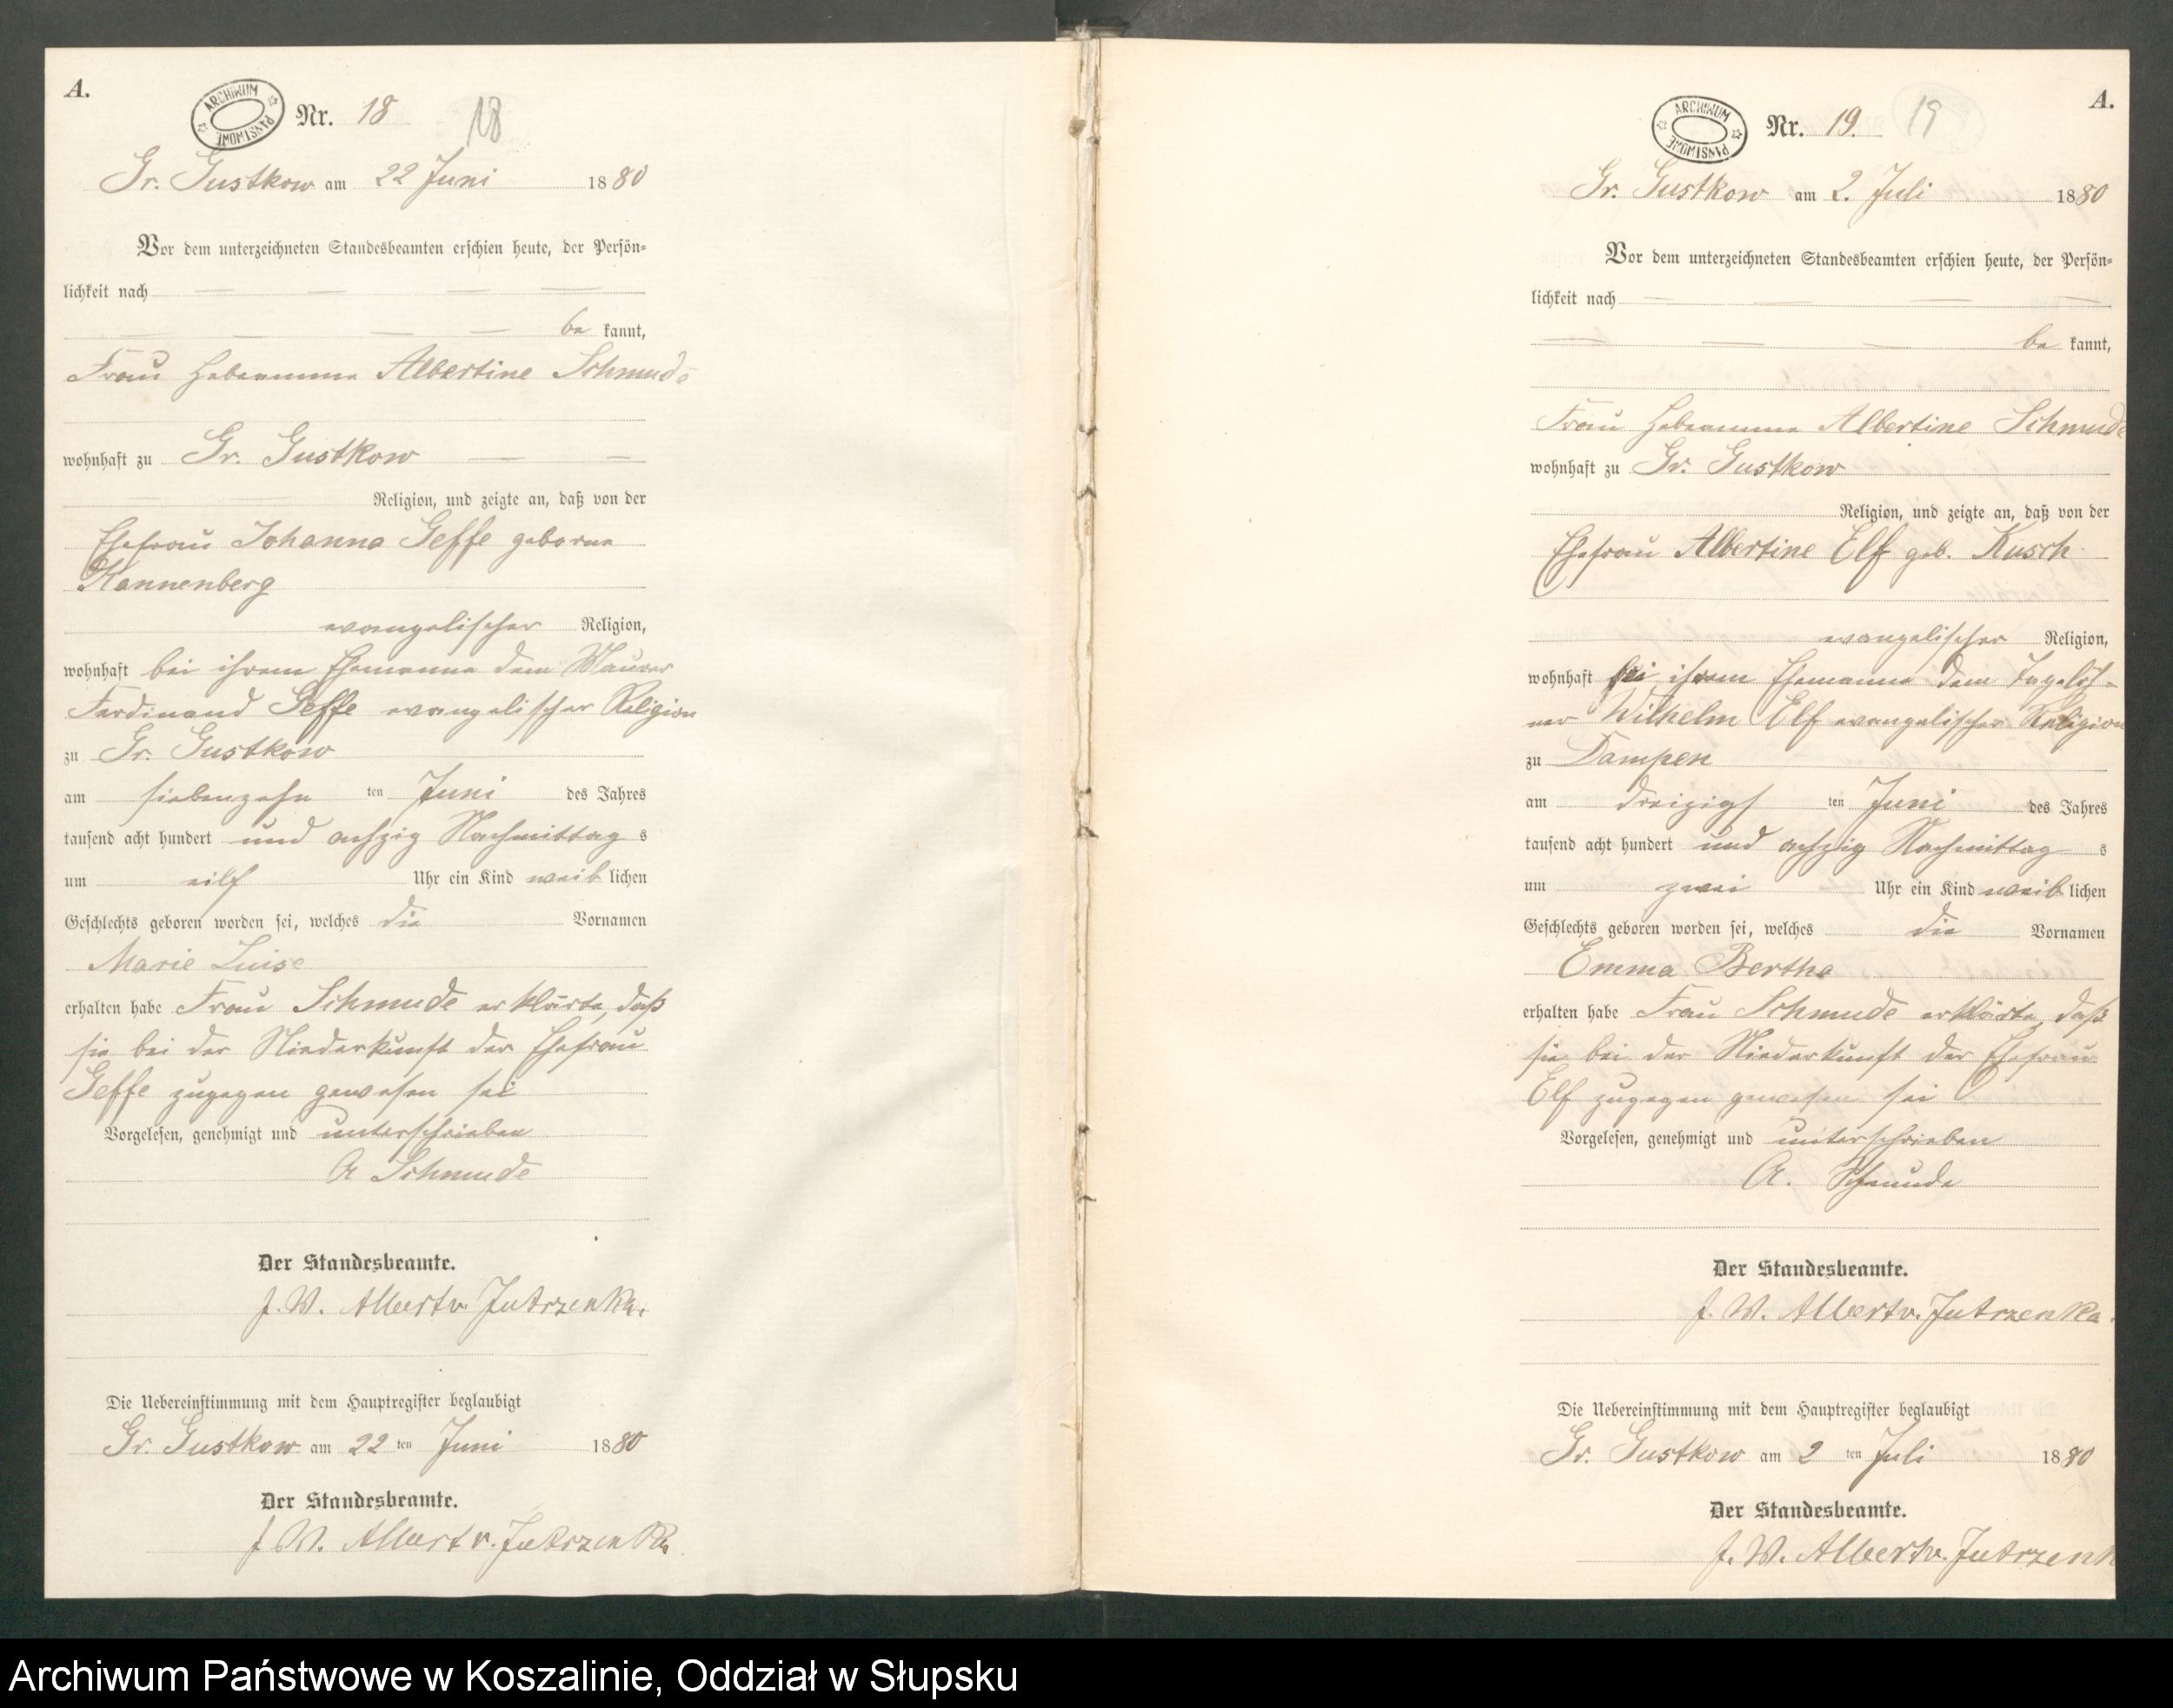 A.
ARCHIWUM PAŃSTWOWE
Nr. 18
18
Gr. Gustkow am 22 Juni 1880
Vor dem unterzeichneten Standesbeamten erschien heute, der Persön=
lichkeit nach
be kannt,
Frau Hebeamme Albertine Schmude
wohnhaft zu Gr. Gustkow
Religion, und zeigte an, daß von der
Ehefrau Johanna Geffe geborne
Kannenberg
evangelischer Religion,
wohnhaft bei ihrem Ehemanne dem Maurer
Ferdinand Geffe evangelischer Religion
zu Gr. Gustkow
am siebenzehn ten Juni des Jahres
tausend acht hundert und achzig Nachmittag s
um eilf Uhr ein Kind weib lichen
Geschlechts geboren worden sei, welches die Vornamen
Marie Luise
erhalten habe Frau Schmude erklärte, daß
sie bei der Niederkunft der Ehefrau
Geffe zugegen gewesen sei
Vorgelesen, genehmigt und unterschrieben
A Schmude
Der Standesbeamte.
J. W. Albert v. Jutrzenka.
Die Uebereinstimmung mit dem Hauptregister beglaubigt
Gr. Gustkow am 22 ten Juni 1880
Der Standesbeamte.
J. W. Albert v. Jutrzenka
A.
ARCHIWUM PAŃSTWOWE
Nr. 19.
19
Gr. Gustkow am 2. Juli 1880
Vor dem unterzeichneten Standesbeamten erschien heute, der Persön=
lichkeit nach
be kannt,
Frau Hebeamme Albertine Schmude
wohnhaft zu Gr. Gustkow
Religion, und zeigte an, daß von der
Ehefrau Albertine Elf geb. Kusch
evangelischer Religion,
wohnhaft bei ihrem Ehemanne dem Tagelöh-
ner Wilhelm Elf evangelischer Religion
zu Dampen
am dreizigs ten Juni des Jahres
tausend acht hundert und achzig Nachmittag s
um zwei Uhr ein Kind weib lichen
Geschlechts geboren worden sei, welches die Vornamen
Emma Bertha
erhalten habe Frau Schmude erklärte, daß
sie bei der Niederkunft der Ehefrau
Elf zugegen gewesen sei
Vorgelesen, genehmigt und unterschrieben
A. Schmude
Der Standesbeamte.
J. W. Albert v. Jutrzenka.
Die Uebereinstimmung mit dem Hauptregister beglaubigt
Gr. Gustkow am 2 ten Juli 1880
Der Standesbeamte.
J. W. Albert v. Jutrzenk
Archiwum Państwowe w Koszalinie, Oddział w Słupsku